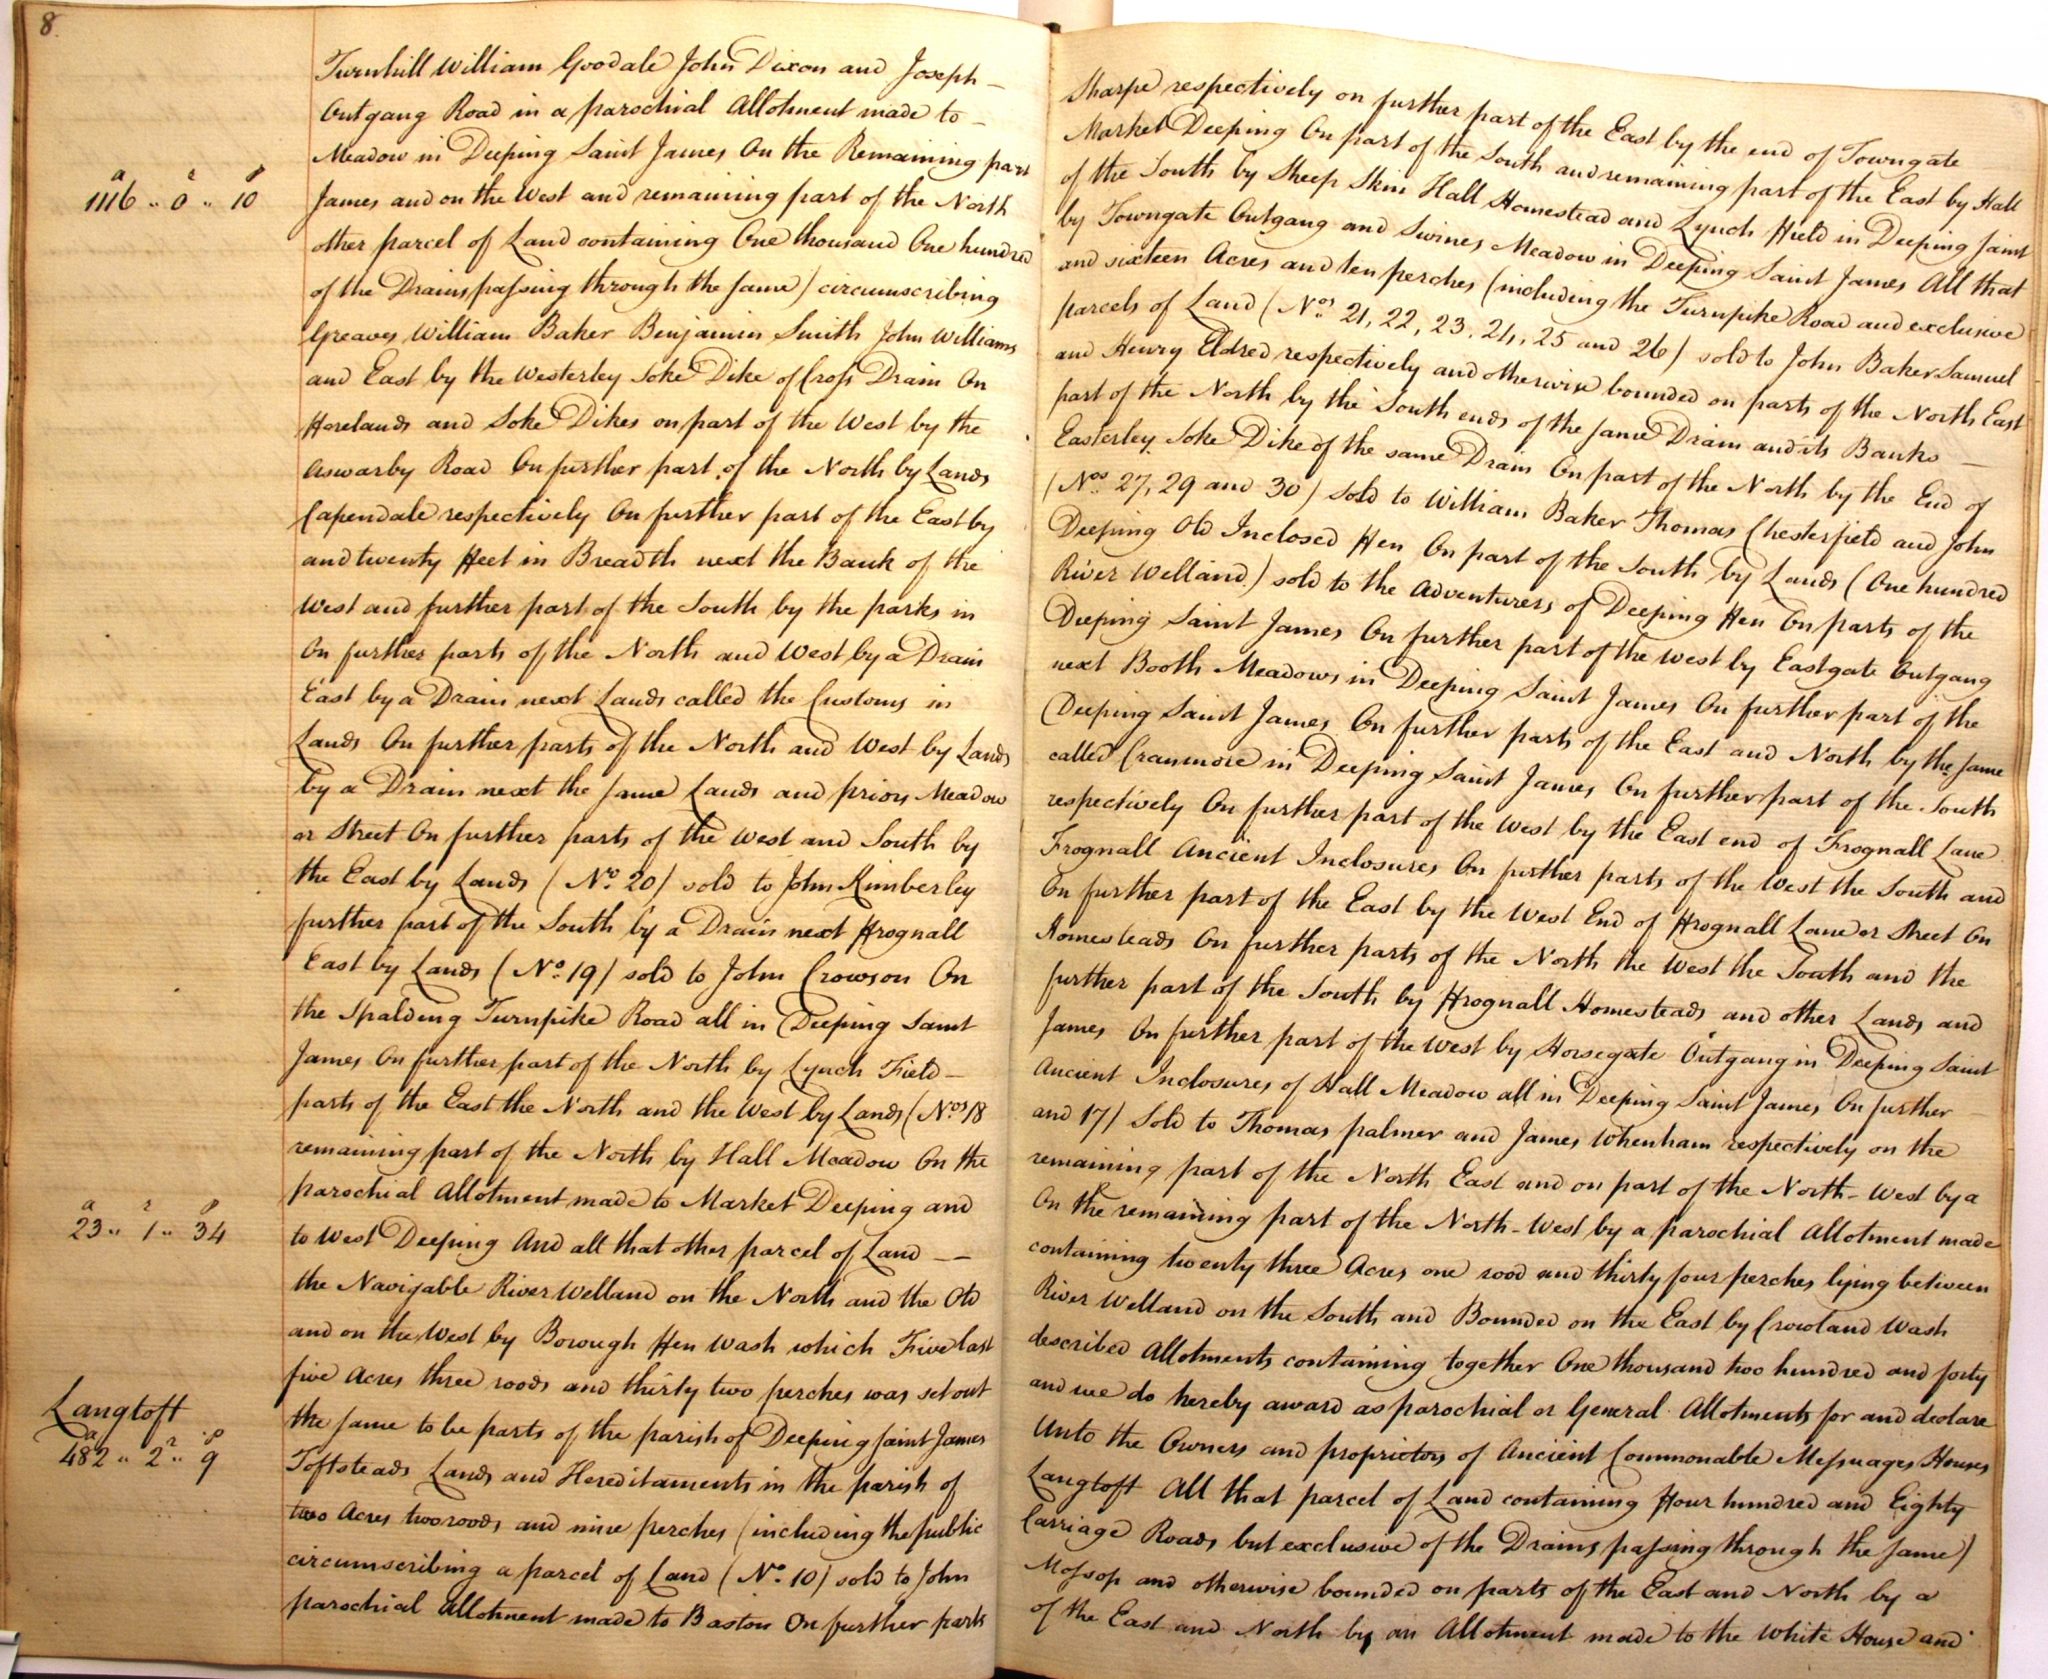 8.
Turnhill William Goodale John Dixon and Joseph – Sharpe respectively on further part of the East by the end of Towngate
Outgang Road in a parochial Allotment made to – Market Deeping On part of the South and remaining part of the East by Hall
Meadow in Deeping Saint James On the Remaining part of the South by Sheep Skin Hall Homestead and Lynch Field in Deeping Saint
a r p
1116 „ 0 „ 10
James and on the West and remaining part of the North by Towngate Outgang and Swines Meadow in Deeping Saint James All that
other parcel of Land containing One thousand One hundred and sixteen Acres and ten perches (including the Turnpike Road and exclusive
of the Drains passing through the same) circumscribing parcels of Land (Nos 21, 22, 23, 24, 25 and 26) sold to John Baker Samuel
Greaves William Baker Benjamin Smith John Williams and Henry Eldred respectively and otherwise bounded on parts of the North East
and East by the Westerley Soke Dike of Cross Drain On part of the North by the South ends of the same Drain and its Banks –
Forelands and Soke Dikes on part of the West by the Easterley Soke Dike of the same Drain On part of the North by the End of
Aswarby Road On further part of the North by Lands (Nos 27, 29 and 30) sold to William Baker Thomas Chesterfield and John
Capendale respectively On further part of the East by Deeping Old Inclosed Fen On part of the South by Lands (One hundred
and twenty Feet in Breadth next the Bank of the River Welland) sold to the Adventurers of Deeping Fen On parts of the
West and further part of the South by the parks in Deeping Saint James On further part of the West by Eastgate Outgang
On further parts of the North and West by a Drain next Booth Meadows in Deeping Saint James On further part of the
East by a Drain next Lands called the Customs in Deeping Saint James On further parts of the East and North by the same
Lands On further parts of the North and West by Lands called Cranmore in Deeping Saint James On further part of the South
by a Drain next the same Lands and priors Meadow respectively On further part of the West by the East end of Frognall Lane
or Street On further parts of the West and South by Frognall Ancient Inclosures On further parts of the West the South and
the East by Lands (No. 20) sold to John Kimberley On further part of the East by the West End of Frognall Lane or Street On
further part of the South by a Drain next Frognall Homesteads On further parts of the North the West the South and the
East by Lands (No. 19) sold to John Crowson On further part of the South by Frognall Homesteads and other Lands and
the Spalding Turnpike Road all in Deeping Saint James On further part of the West by Horsegate Outgang in Deeping Saint
James On further part of the North by Lynch Field – Ancient Inclosures of Hall Meadow all in Deeping Saint James On further
parts of the East the North and the West by Lands (Nos 18 and 17) Sold to Thomas palmer and James Whenham respectively on the
remaining part of the North by Hall Meadow On the remaining part of the North East and on part of the North-West by a
parochial Allotment made to Market Deeping and On the remaining part of the North-West by a parochial Allotment made
a r p
23 „ 1 „ 34
to West Deeping And all that other parcel of Land –– containing twenty three Acres one rood and thirty four perches lying between
the Navigable River Welland on the North and the Old River Welland on the South and Bounded on the East by Crowland Wash
and on the West by Borough Fen Wash which Five last described Allotments containing together One thousand two hundred and forty
five Acres three roods and thirty two perches was set out and we do hereby award as parochial or General Allotments for and declare
Langtoft
the same to be parts of the parish of Deeping Saint James Unto the Owners and proprietors of Ancient Commonable Messuages Houses
a r p
482 „ 2 „ 9
Toftsteads Lands and Hereditaments in the parish of Langtoft All that parcel of Land containing Four hundred and Eighty
two Acres two roods and nine perches (including the public Carriage Roads but exclusive of the Drains passing through the same)
circumscribing a parcel of Land (No. 10) sold to John Mossop and otherwise bounded on parts of the East and North by a
parochial Allotment made to Baston On further parts of the East and North by an Allotment made to the White House and